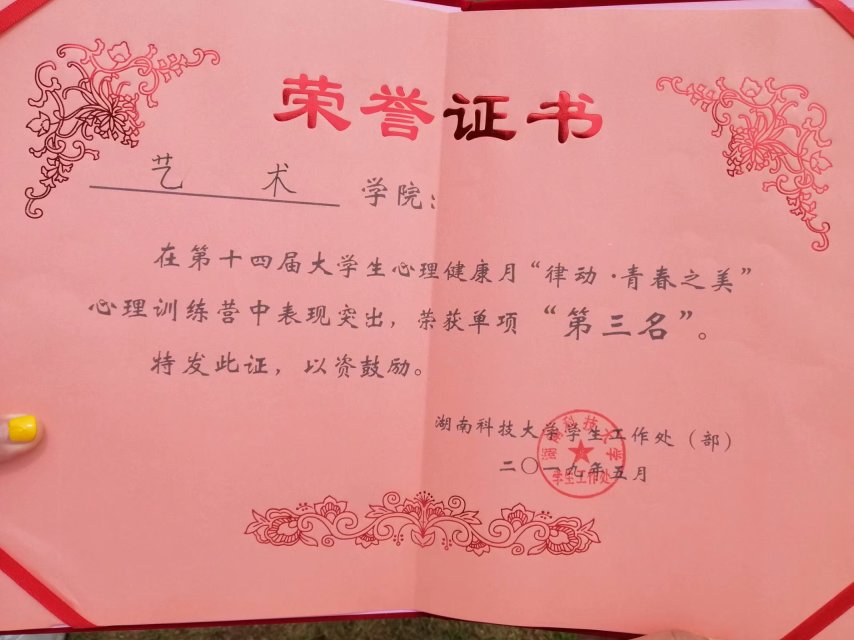 荣誉证书
艺 术 学院：
在第十四届大学生心理健康月“律动·青春之美”
心理训练营中表现突出，荣获单项“第三名”。
特发此证，以资鼓励。
湖南科技大学学生工作处（部）
二〇一九年五月
湖南科技大学
学生工作处